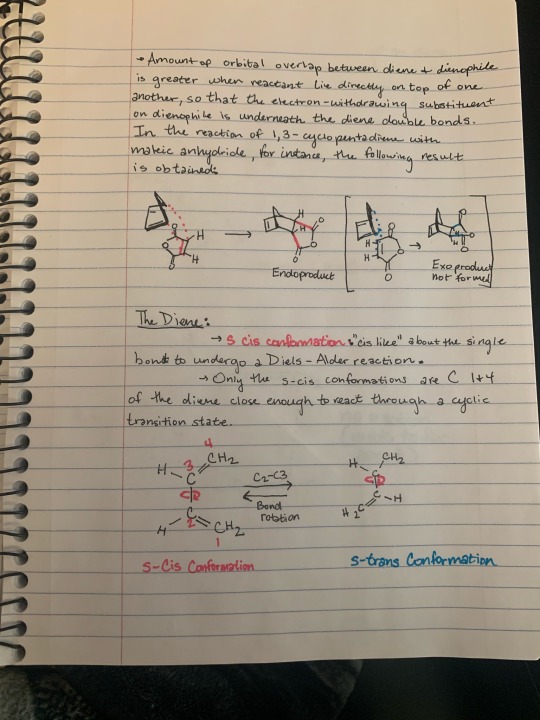 → Amount of orbital overlap between diene + dienophile
is greater when reactant lie directly on top of one
another, so that the electron-withdrawing substituent
on dienophile is underneath the diene double bonds.
In the reaction of 1,3-cyclopentadiene with
maleic anhydride, for instance, the following result
is obtained:
O H H O O
H H O O O
Endoproduct
H H O O O
H H O O O
Exoproduct
not formed
The Diene:
→ S cis conformation: "cis like" about the single
bond to undergo a Diels-Alder reaction.
→ Only the s-cis conformations are C 1+4
of the diene close enough to react through a cyclic
transition state.
4
H 3 C CH2
C
H 2 CH2
1
C2-C3
Bond
rotation
H C CH2
C H
H2C
S-Cis Conformation
S-trans Conformation